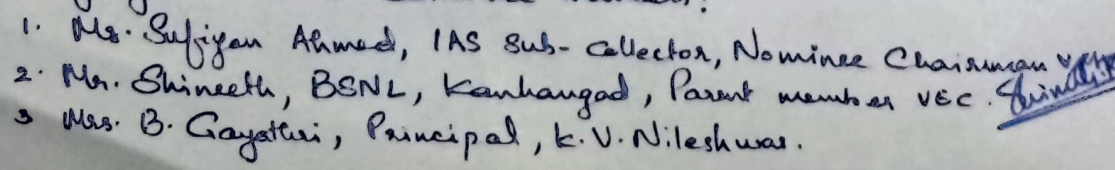 1. Mr. Sufiyan Ahmed, IAS Sub-Collector, Nominee Chairman
2. Mr. Shineeth, BSNL, Kanhangad, Parent member VEC.
3 Mrs. B. Gayathri, Principal, K.V. Nileshwar.